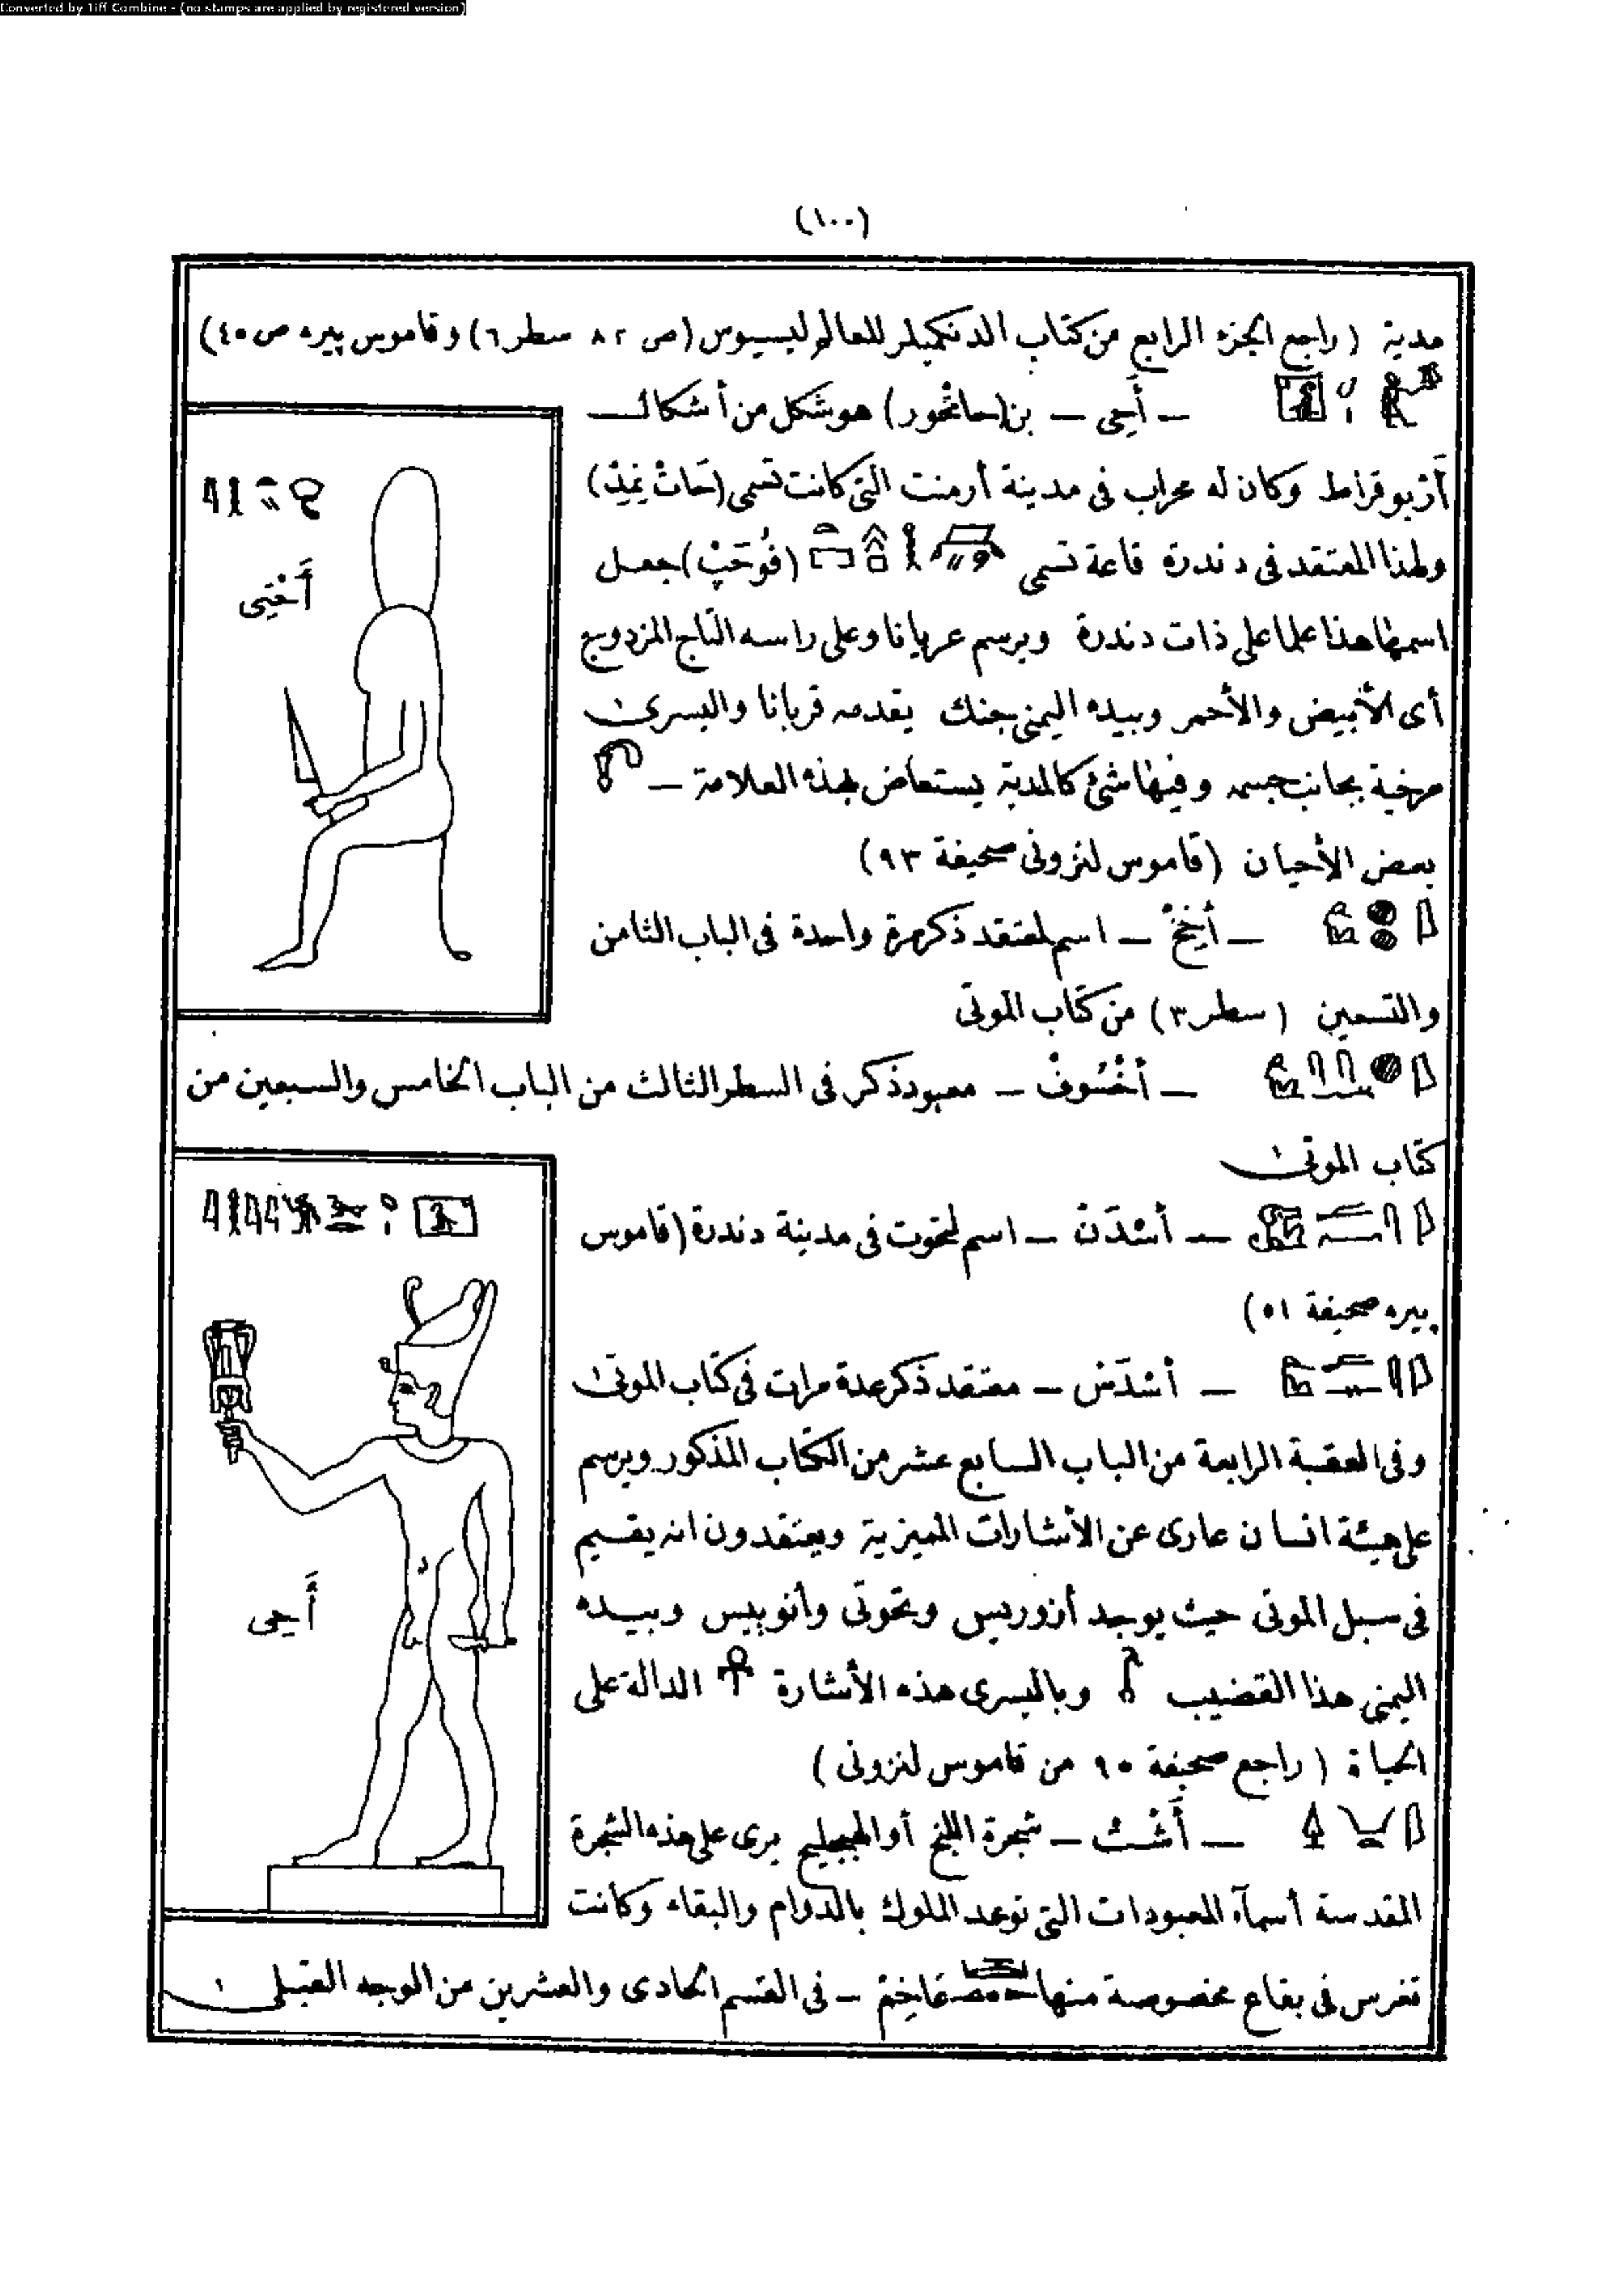 Converted by Tiff Combine - (no stamps are applied by registered version)
(١٠٠)
مدية (راجع الجزء الرابع من كتاب الدنكميلر للعالم ليسيوس (ص ٨٢ سطر ٦) وقاموس پيره ص ٤٠)
— أَحِى — بن (حاتحور) هو شكل من أشكال
أرپوقراط وكان له محراب فى مدينة أرمنت التى كانت تسمى
ولهذا المعتقد فى دندرة قاعة تسمى جعل
اسمها هذا علما على ذات دندرة ويرسم عريانا وعلى راسه التاج المزدوج
أى الأبيض والأحمر وبيده اليمنى جنك يقدمه قربانا واليسرى
مرخية بجانب جسمه وفيها شئ كالمدية يستعاض بهذه العلامة —
بعض الأحيان (قاموس لنزونى صحيفة ٩٣)
— أَخِخْ — اسم لمعتقد ذكر مرة واحدة فى الباب الثامن
والتسعين (سطر ٣) من كتاب الموتى
— أَخْسُوفْ — معبود ذكر فى السطر الثالث من الباب الخامس والسبعين من
كتاب الموتى
— أَسْدَنْ — اسم لتحوت فى مدينة دندرة (قاموس
پيره صحيفة ٥١)
— أَسْدَسْ — معتقد ذكر عدة مرات فى كتاب الموتى
وفى العقبة الرابعة من الباب السابع عشر من الكتاب المذكور ويرسم
على هيئة انسان عارى عن الأشارات المميزية ويعتقدون انه يقسيم
فى سبل الموتى حيث يوجد أزوريس وتحوتى وأنوبيس وبيده
اليمنى هذا القضيب وباليسرى هذه الأشارة الدالة على
الحياة (راجع صحيفة ٩٥ من قاموس لنزونى)
— أَشْت — شجرة اللبخ أو الهجليج يرى على هذه الشجرة
المقدسة أسمآء المعبودات التى توعد الملوك بالدوام والبقاء وكانت
تغرس فى بقاع مخصوصة منها — فى القسم الحادى والعشرين من الوجه القبلى
أَحِى